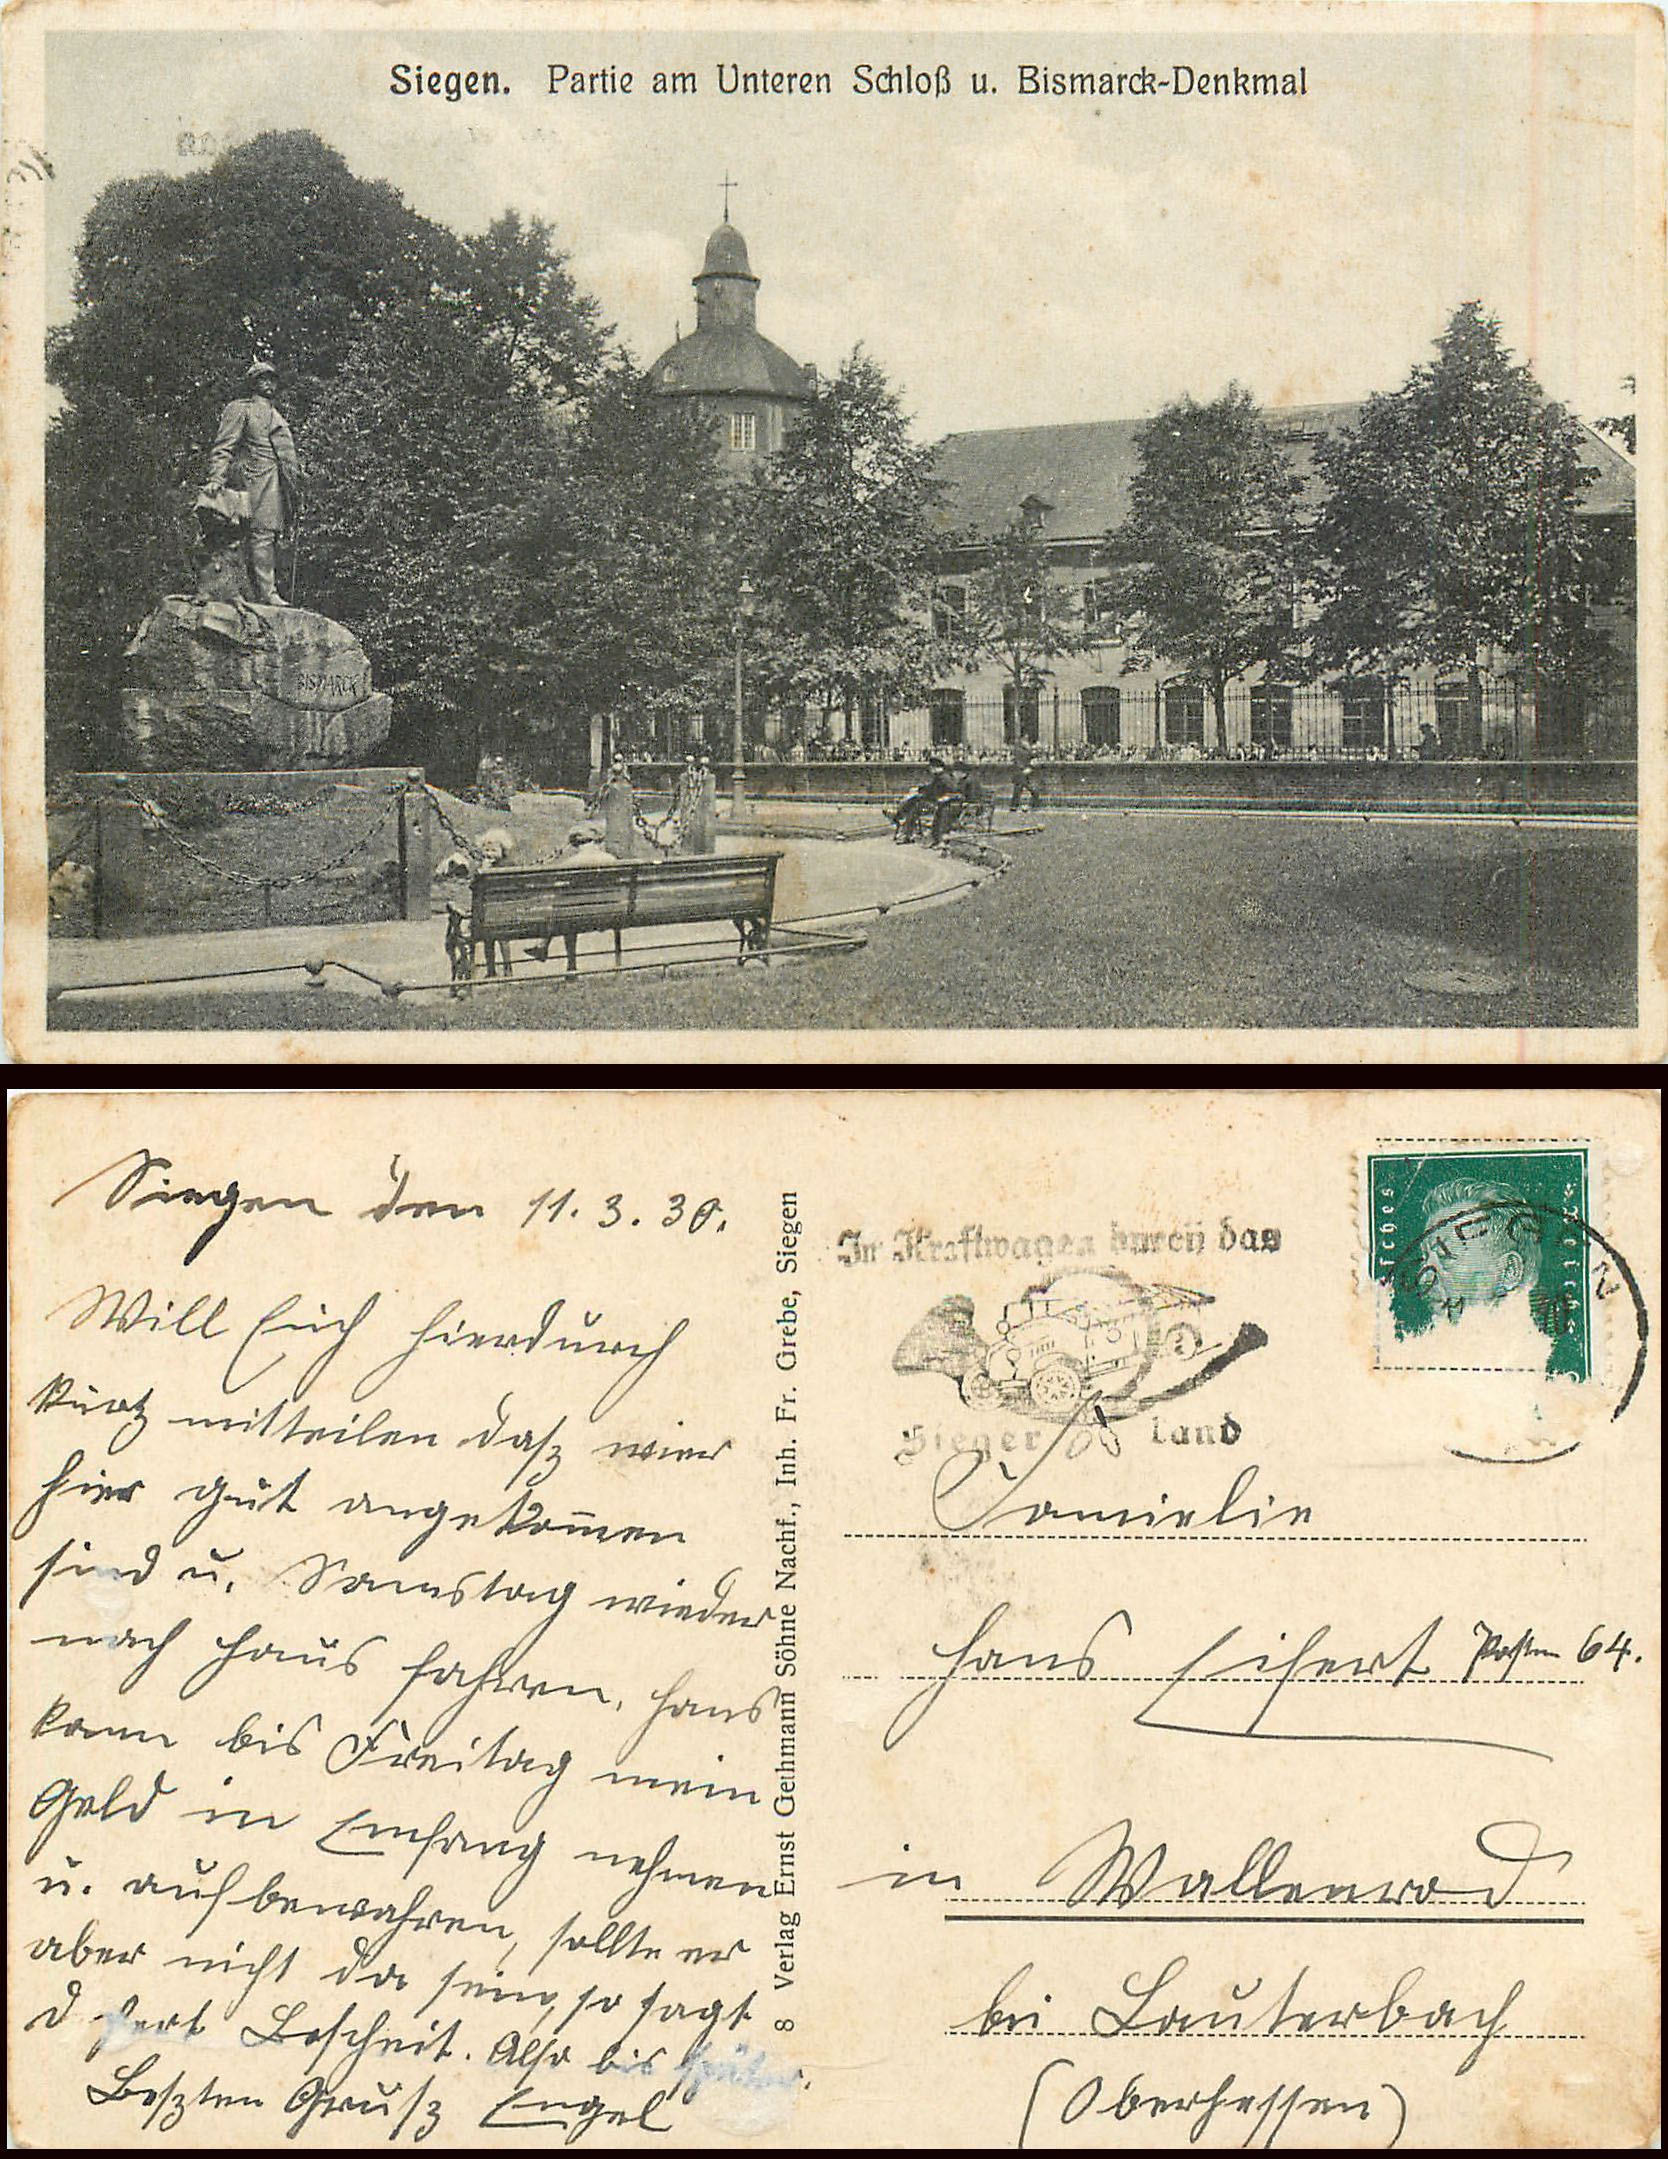 Siegen. Partie am Unteren Schloß u. Bismarck-Denkmal
BISMARCK
Siegen den 11. 3. 30.
Will Euch hierdurch
kurz mitteilen dasz wier
hier gut angekom̄en
sind u. Samstag wieder
nach Haus fahren. Hans
kann bis Freitag mein
Geld in Empfang nehmen
u. aufbewahren, sollte er
aber nicht da sein, so sagt
d Bescheit. Also bis später.
Beszten Grusz Engel
8 Verlag Ernst Gethmann Söhne Nachf., Inh. Fr. Grebe, Siegen
In Kraftwagen durch das
Sieger land
SIEGEN
Familie
Hans Eifert Posten 64.
in Wallenrod
bei Lauterbach
(Oberhessen)